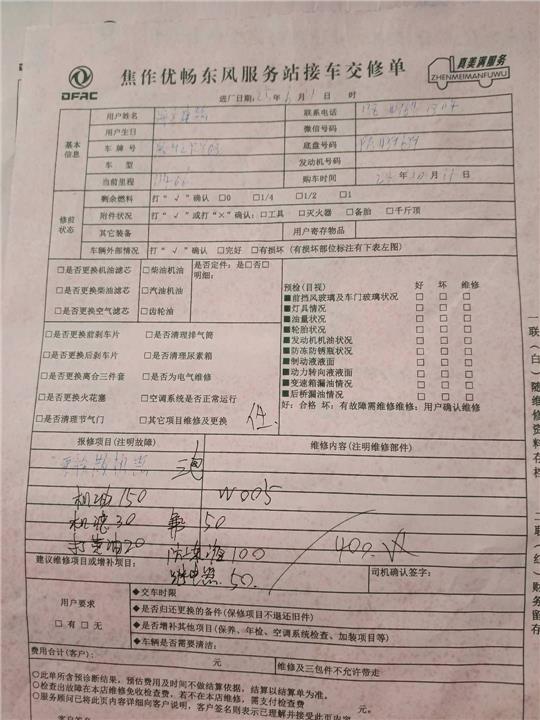 DFAC
焦作优畅东风服务站接车交修单
真美满服务
ZHENMEIMANFUWU
进厂日期:25年6月1日 时
基本信息
用户姓名 联系电话
用户生日 微信号码
车牌号 底盘号码
车型 发动机号码
当前里程 购车时间 年 月 日
修前状态
剩余燃料 打“√”确认 □0 □1/4 □1/2 □1
附件状况 打“√”或打“×”确认:□工具 □灭火器 □备胎 □千斤顶
其它装备 用户寄存物品
车辆外部情况 打“√”确认 □完好 □有损坏(有损坏部位标注有下表左图)
□是否更换机油滤芯 □柴油机油 是否定件:是□否□
□是否更换柴油滤芯 □汽油机油 明细:
□是否更换空气滤芯 □齿轮油
□是否更换前刹车片 □是否清理排气筒
□是否更换后刹车片 □是否清理尿素箱
□是否更换离合三件套 □是否为电气维修
□是否更换火花塞 □空调系统是否正常运行
□是否清理节气门 □其它项目维修及更换
预检(目视) 好 坏 维修
■前挡风玻璃及车门玻璃状况 □ □ □
■灯具情况 □ □ □
■油量状况 □ □ □
■轮胎状况 □ □ □
■发动机机油状况 □ □ □
■防冻防锈瓶状况 □ □ □
■制动液液面 □ □ □
■动力转向液液面 □ □ □
■变速箱漏油情况 □ □ □
■后桥漏油情况 □ □ □
好:合格 坏:有故障需维修维修:用户确认维修
报修项目(注明故障) 维修内容(注明维修部件)
机油150 W005
机滤30 50
打黄油20 100
继电器50. 400.
建议维修项目或增补项目: 司机确认签字:
用户要求
□有□无
◆交车时限
◆是否归还更换的备件(保修项目不退还旧件)
◆是否增补其他项目(保养、年检、空调系统检查、加装项目等)
◆车辆是否需要清洁:
费用合计(客户): 元 维修及三包件不允许带走
○此单所含预诊断结果,预估费用及时间不做结算依据,结算以结算单为准。
○检查出故障在本店维修免收检查费,若不在本店维修,需支付检查费 元。
○服务顾问已将此页内容详细向客户说明,客户签名则表示已理解并接受此页内容
一联(白)随维修资料存档